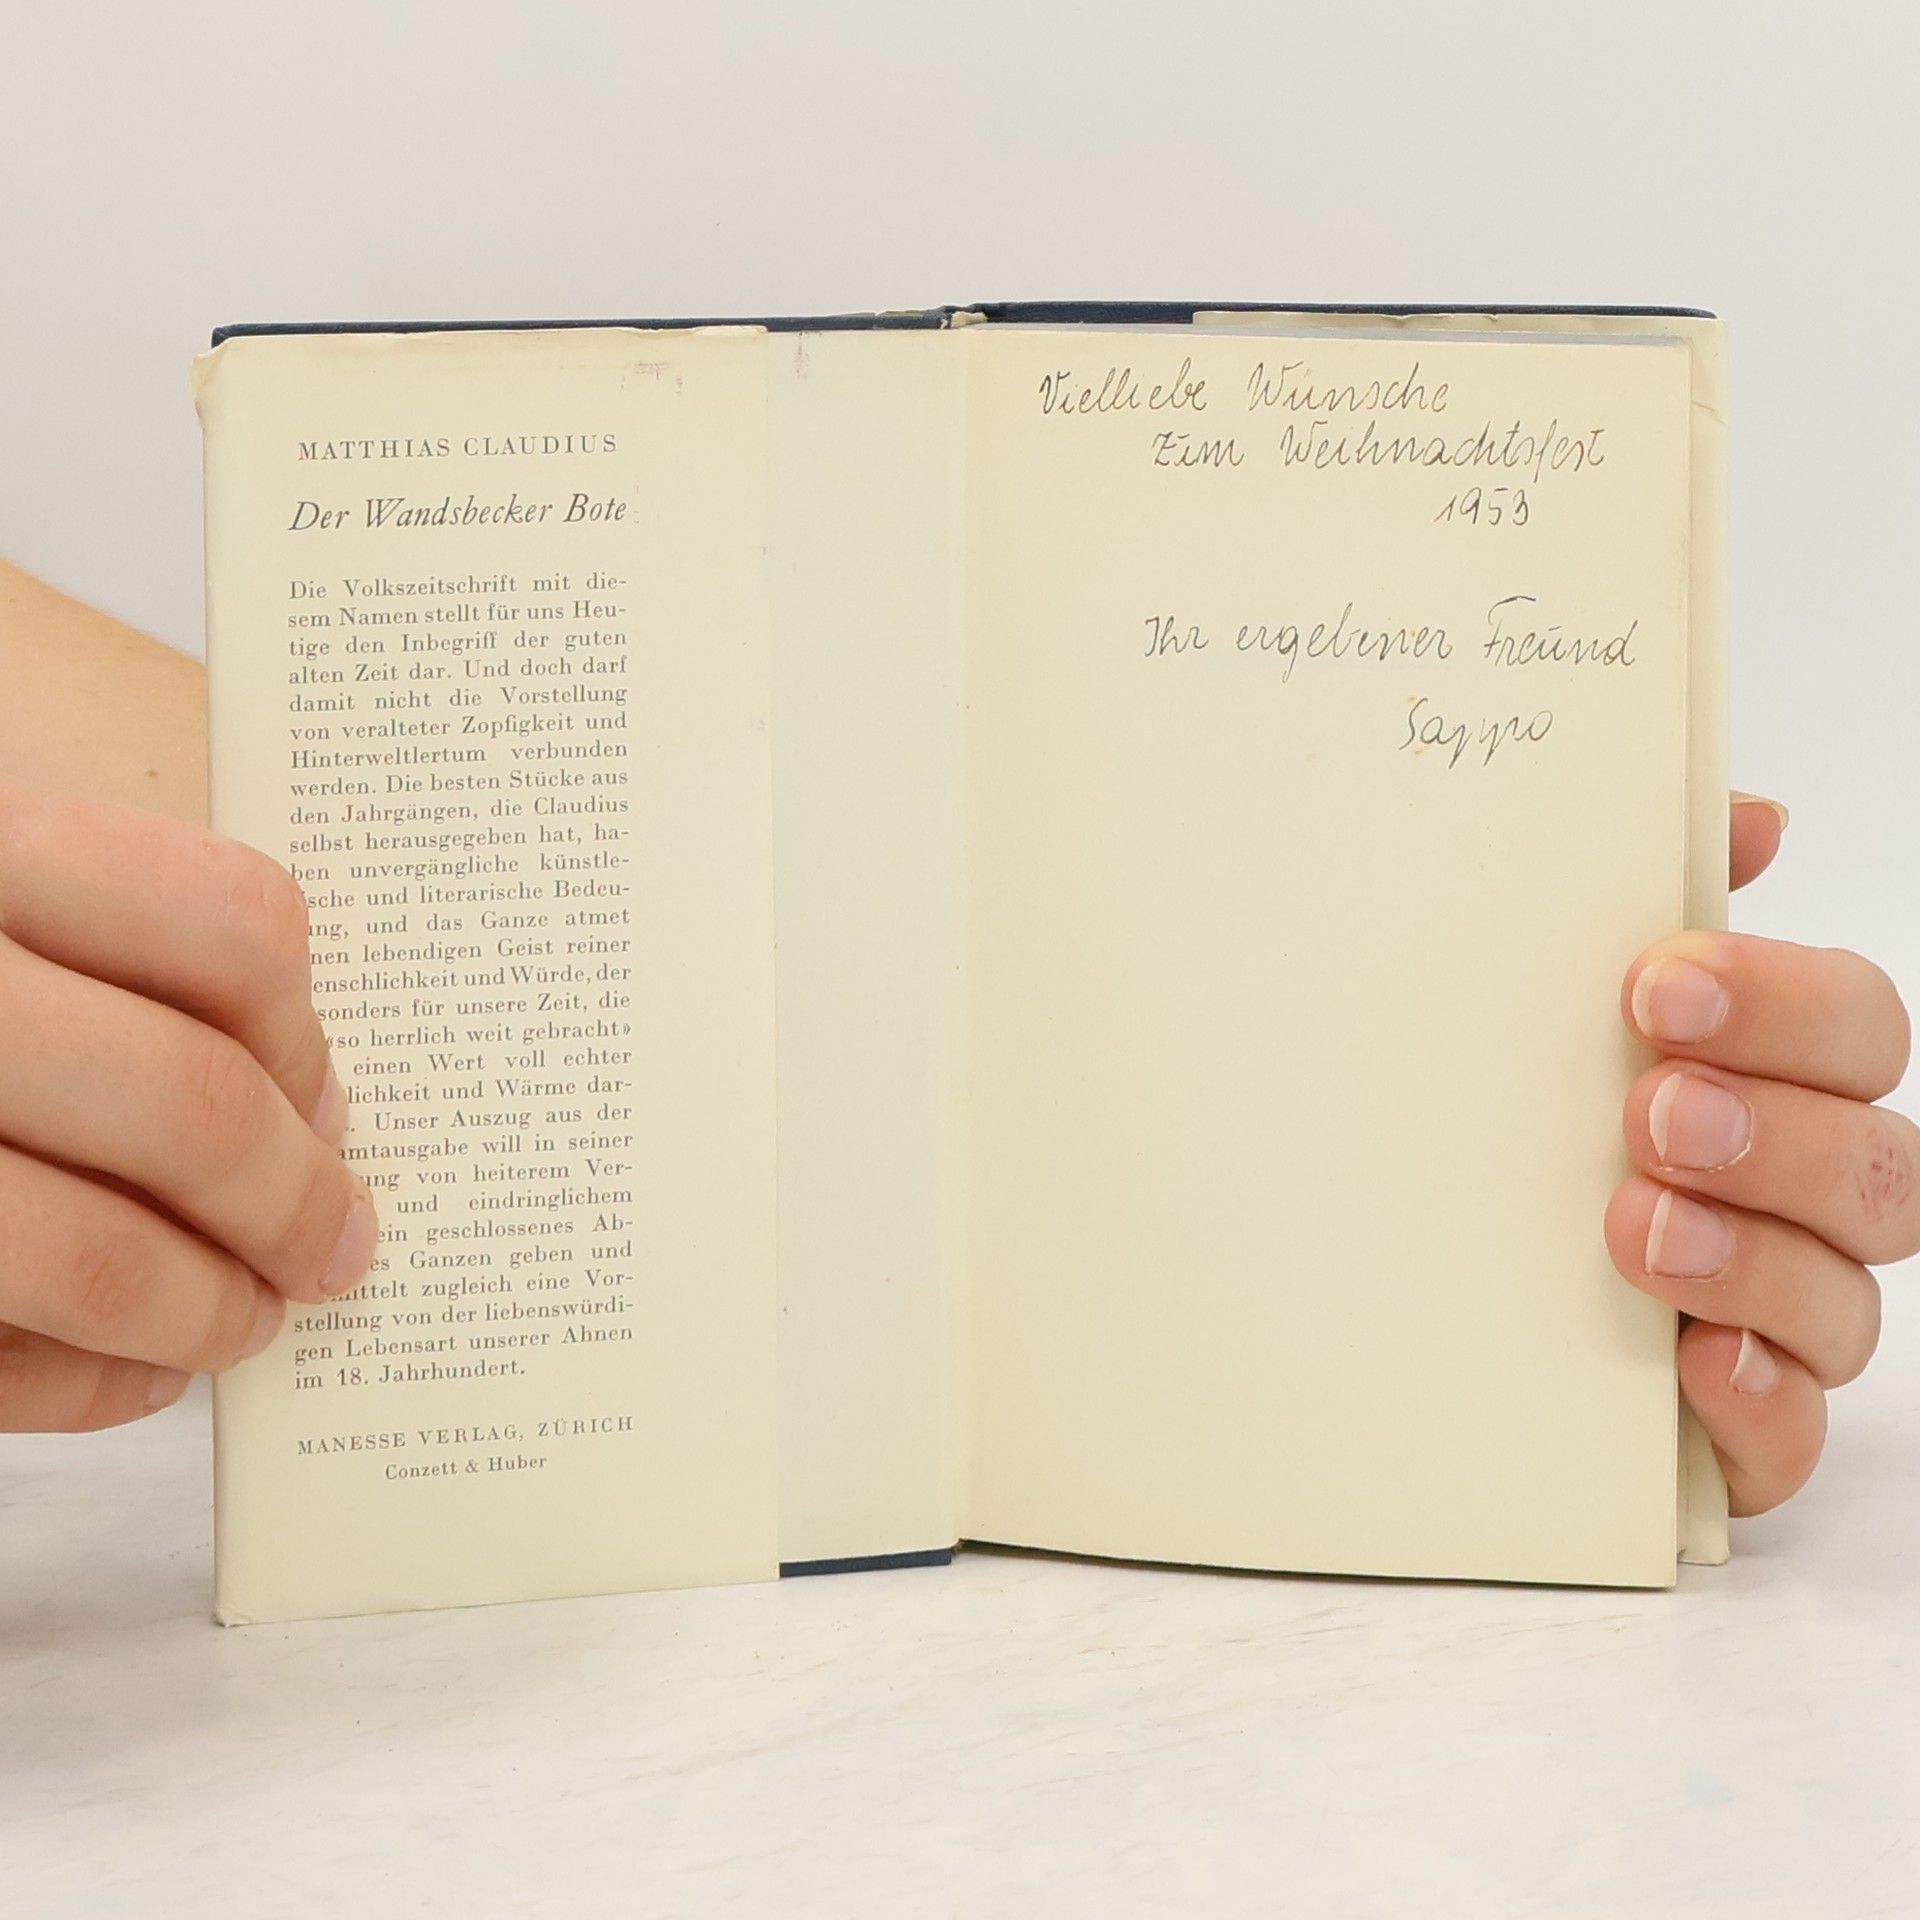 MATTHIAS CLAUDIUS
Der Wandsbecker Bote
Die Volkszeitschrift mit die-
sem Namen stellt für uns Heu-
tige den Inbegriff der guten
alten Zeit dar. Und doch darf
damit nicht die Vorstellung
von veralteter Zopfigkeit und
Hinterweltlertum verbunden
werden. Die besten Stücke aus
den Jahrgängen, die Claudius
selbst herausgegeben hat, ha-
ben unvergängliche künstle-
ische und literarische Bedeu-
ung, und das Ganze atmet
nen lebendigen Geist reiner
enschlichkeit und Würde, der
sonders für unsere Zeit, die
«so herrlich weit gebracht»
einen Wert voll echter
lichkeit und Wärme dar-
. Unser Auszug aus der
amtausgabe will in seiner
ung von heiterem Ver-
und eindringlichem
ein geschlossenes Ab-
es Ganzen geben und
mittelt zugleich eine Vor-
stellung von der liebenswürdi-
gen Lebensart unserer Ahnen
im 18. Jahrhundert.
MANESSE VERLAG, ZÜRICH
Conzett & Huber
Vielliebe Wünsche
zum Weihnachtsfest
1953
Ihr ergebener Freund
Sappo